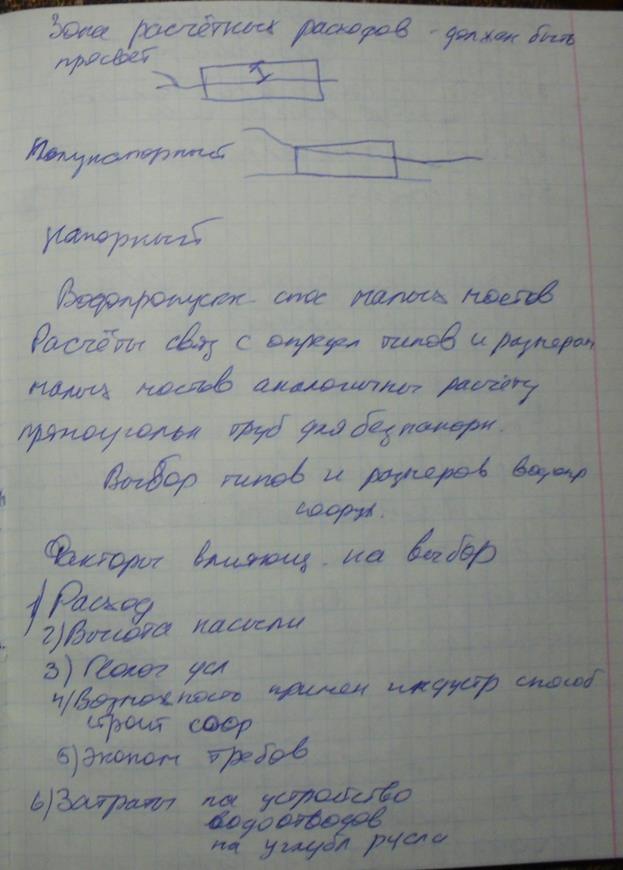 Зона расчётных расходов - должен быть
просвет
Полунапорный
напорный
Водопропускн спос малых мостов
Расчёты связ с определ типов и размеров
малых мостов аналогичны расчёту
прямоугольн труб для безнапорн.
Выбор типов и размеров водопр
сооруж.
Факторы влияющ. на выбор
1) Расход
2) Высота насыпи
3) Геолог усл
4) Возможность примен индустр способ
строит соор
5) Эконом требов
6) Затраты на устройство
водоотводов
на углубл русла